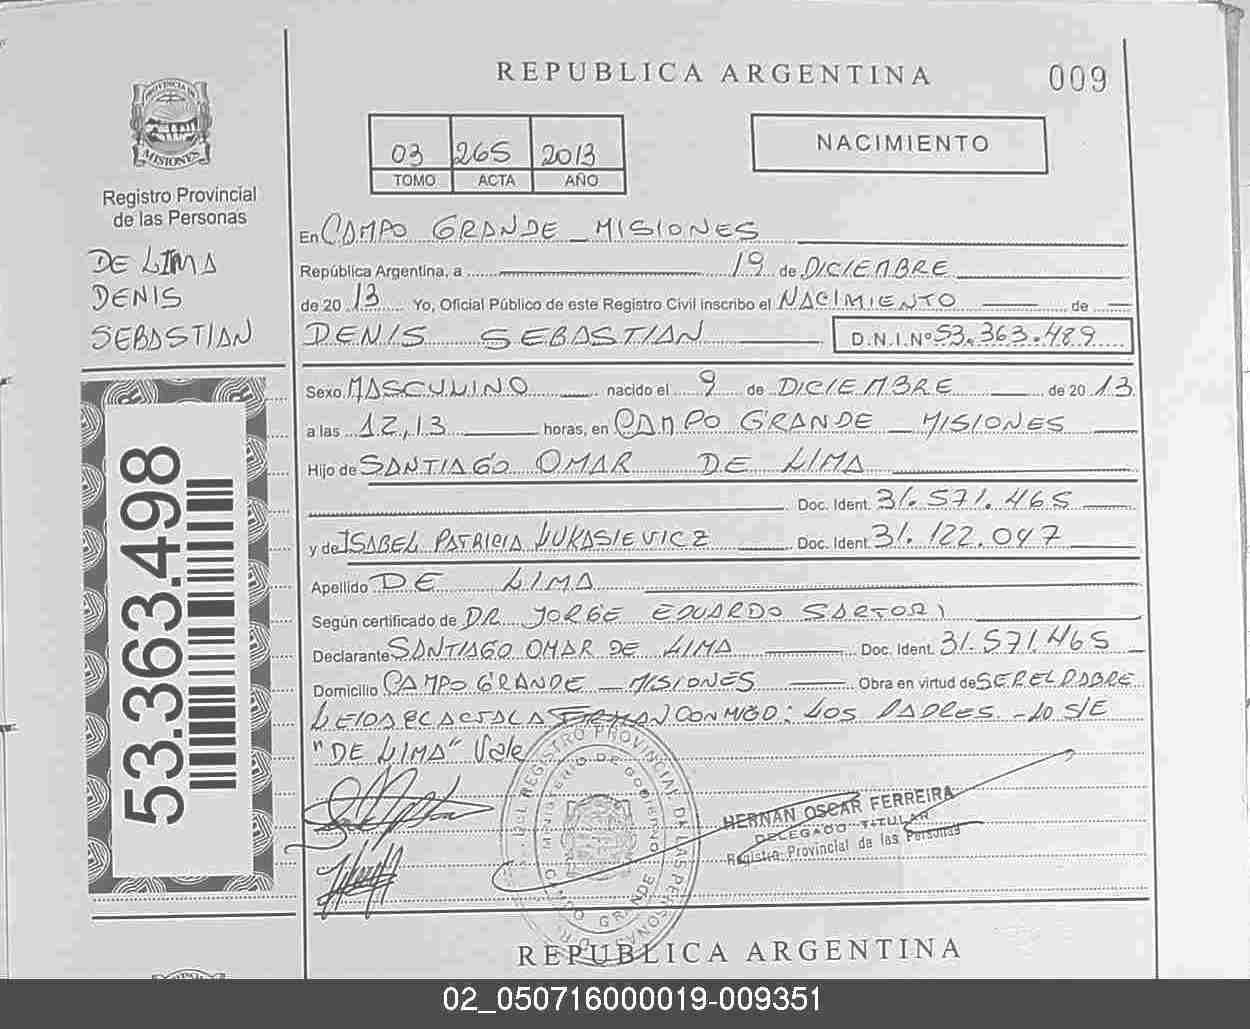 REPUBLICA ARGENTINA
009
PROVINCIA DE
MISIONES
Registro Provincial
de las Personas
DE LIMA
DENIS
SEBASTIAN
53.363.498
03 265 2013
TOMO ACTA AÑO
NACIMIENTO
En CAMPO GRANDE _ MISIONES
República Argentina, a 19 de DICIEMBRE
de 20 13 Yo, Oficial Público de este Registro Civil inscribo el NACIMIENTO de
DENIS SEBASTIAN D.N.I.Nº 53.363.489
Sexo MASCULINO nacido el 9 de DICIEMBRE de 20 13
a las 12,13 horas, en CAMPO GRANDE _ MISIONES
Hijo de SANTIAGO OMAR DE LIMA
Doc. Ident. 31.571.465
y de ISABEL PATRICIA LUKASIEVICZ Doc. Ident. 31.122.047
Apellido DE LIMA
Según certificado de DR JORGE EDUARDO SARTORI
Declarante SANTIAGO OMAR DE LIMA Doc. Ident. 31.571.465
Domicilio CAMPO GRANDE _ MISIONES Obra en virtud de SER EL PADRE
LEIDA EL ACTA LA FIRMAN CONMIGO: LOS PADRES. - LO S/E
"DE LIMA" Vale
HERNAN OSCAR FERREIRA
DELEGADO TITULAR
Registro Provincial de las Personas
REGISTRO PROVINCIAL DE LAS PERSONAS
MINISTERIO DE GOBIERNO
CAMPO GRANDE
REPUBLICA ARGENTINA
02_050716000019-009351